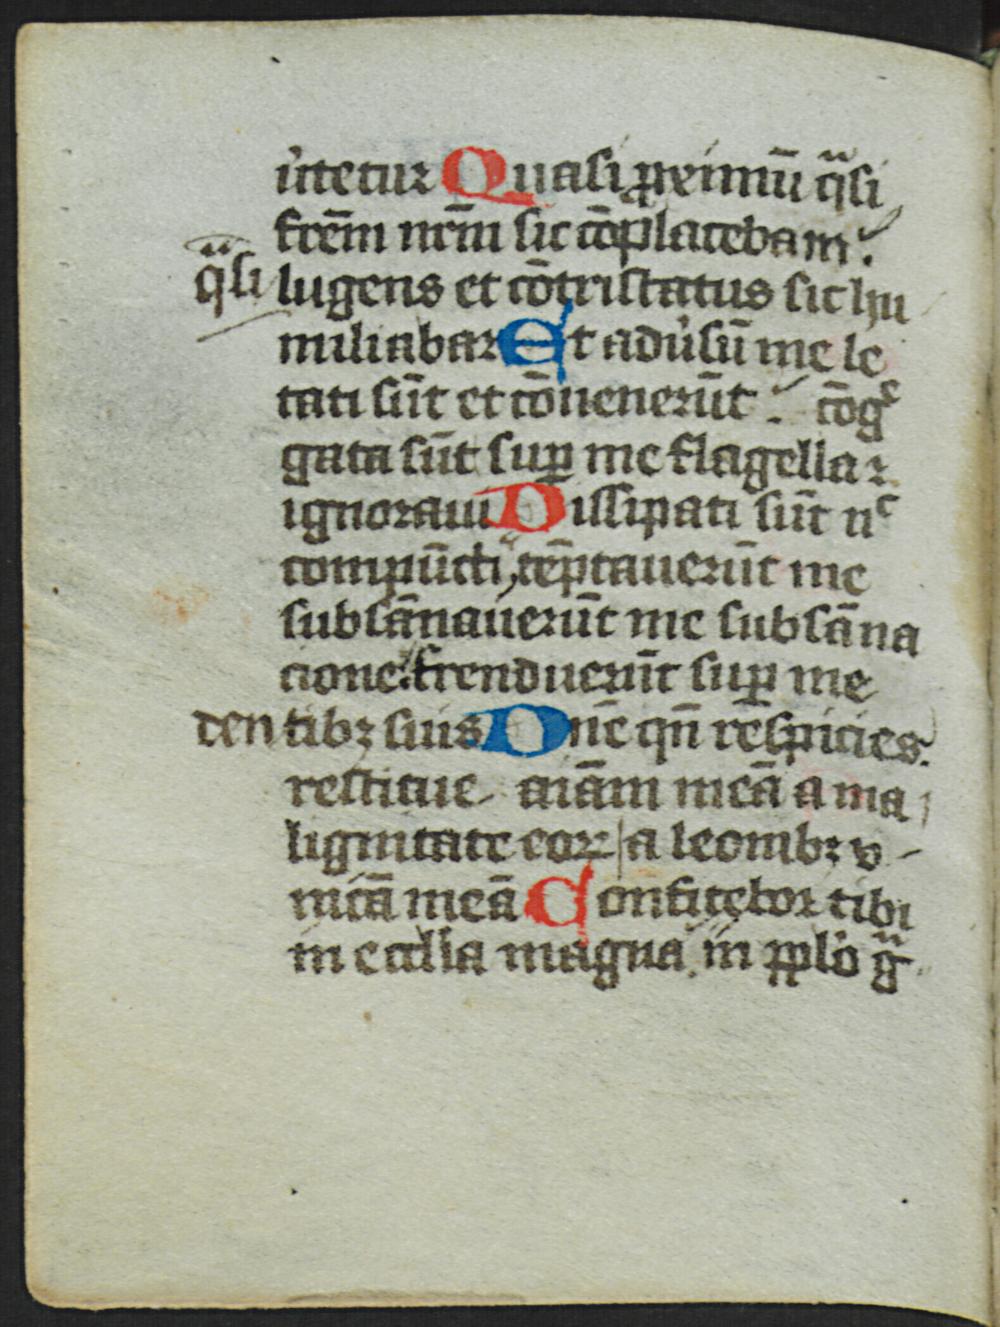 u̾tetur Quasi ꝓximū q̄si
frēm nrm̄ sic cōplacebam:
q̄si lugens et cōtristatus sic hu
miliabar Et aduersū me le
tati sūt et cōuenerūt : cōgͤ
gata sūt suꝑ me flagella ⁊
ignoraui Dissipati sūt nᶜ
compūcti, tēptauerūt me
subsānauerūt me subsāna
cione: frenduerūt suꝑ me
dentibꝫ suis Dnē qn̄ respicies.
restitue aīam meā a ma
lignitate eoꝝ a leonibꝫ v
nicā meā Confitebor tibi
in ecclīa magna, in ppl̄o g̈